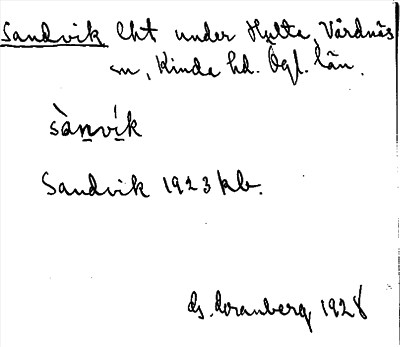 Sandvik lht under Hylta, Vårdnäs
sn, Kinda hd. Ögl. län.
sànvík
Sandvik 1923 kb.
G. Granberg 1928